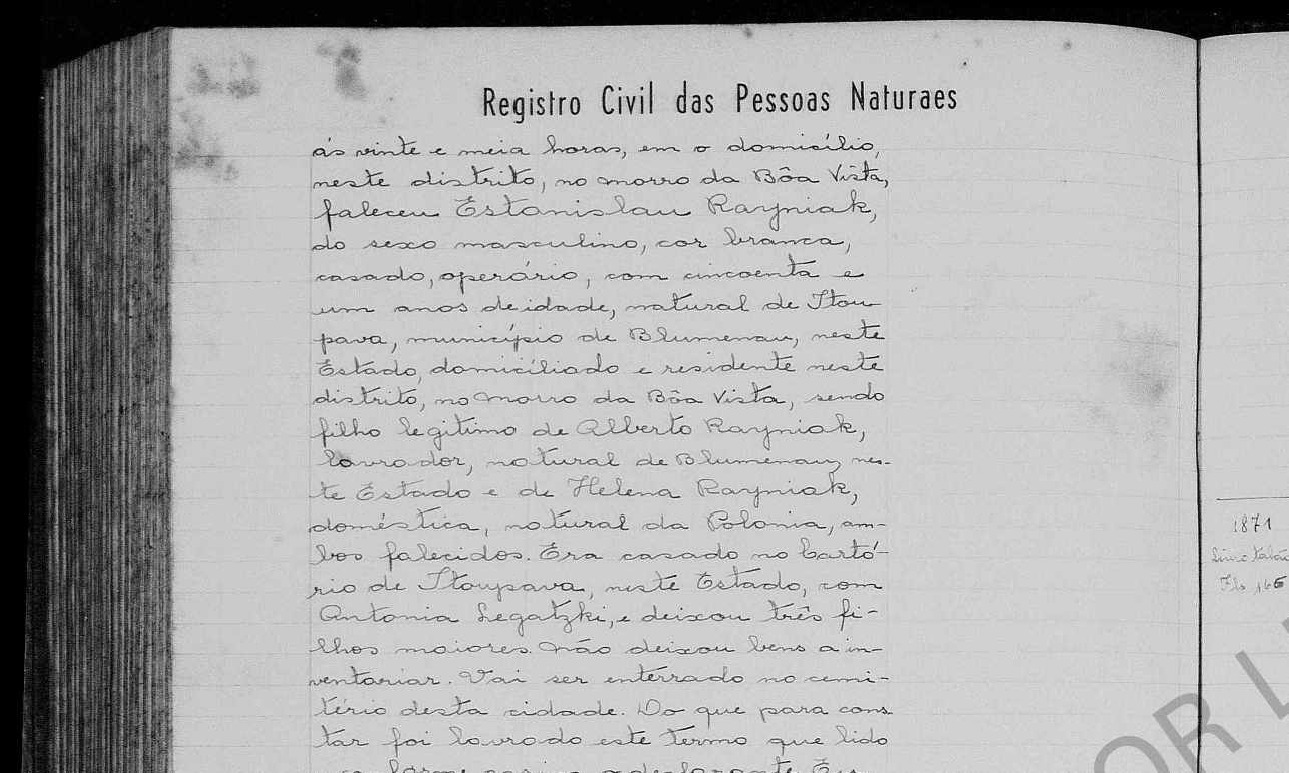 Registro Civil das Pessoas Naturaes
ás vinte e meia horas, em o domicílio,
neste distrito, no morro da Bôa Vista,
faleceu Estanislau Rayniak,
do sexo masculino, cor branca,
casado, operário, com cincoenta e
um anos de idade, natural de Itou
pava, município de Blumenau, neste
Estado, domiciliado e residente neste
distrito, no morro da Bôa Vista, sendo
filho legitimo de Alberto Rayniak,
lavrador, natural de Blumenau, nes-
te Estado e de Helena Rayniak,
doméstica, natural da Polonia, am-
bos falecidos. Era casado no Cartó-
rio de Itoupava, neste Estado, com
Antonia Legatzki, e deixou três fi-
lhos maiores. Não deixou bens a in-
ventariar. Vai ser enterrado no cemi-
tério desta cidade. Do que para cons
tar foi lavrado este termo que lido
1871
Fls 166
OR L